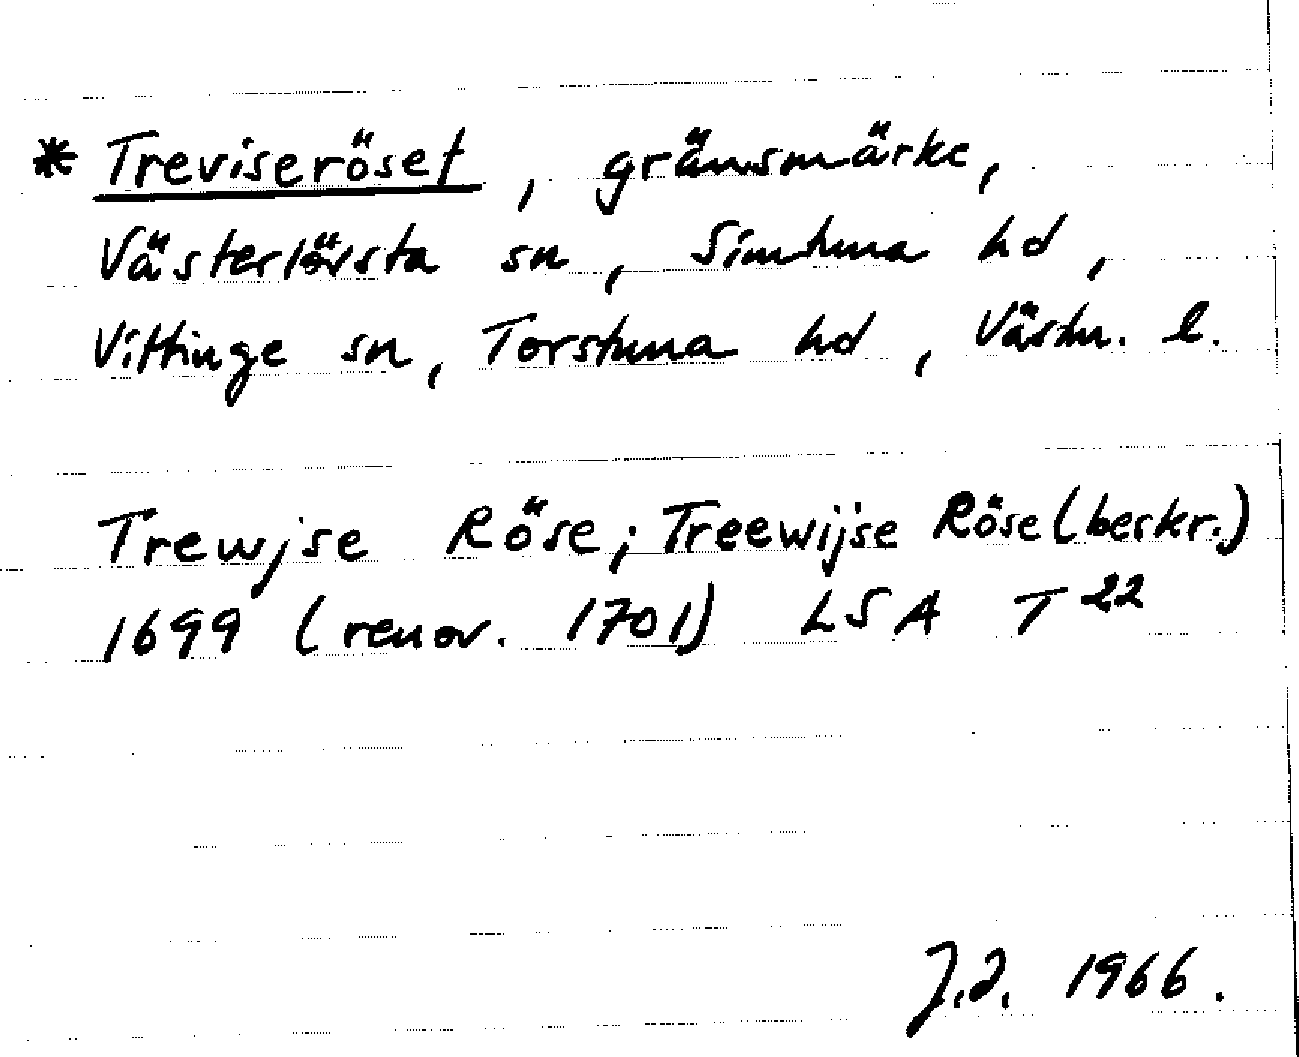 * Treviseröset, gränsmärke,
Västerlövsta sn, Simtuna hd,
Vittinge sn, Torstuna hd, Västm. l.
Trewjse Röse; Treewijse Röse (beskr.)
1699 (renov. 1701) LSA T 22
J.I. 1966.